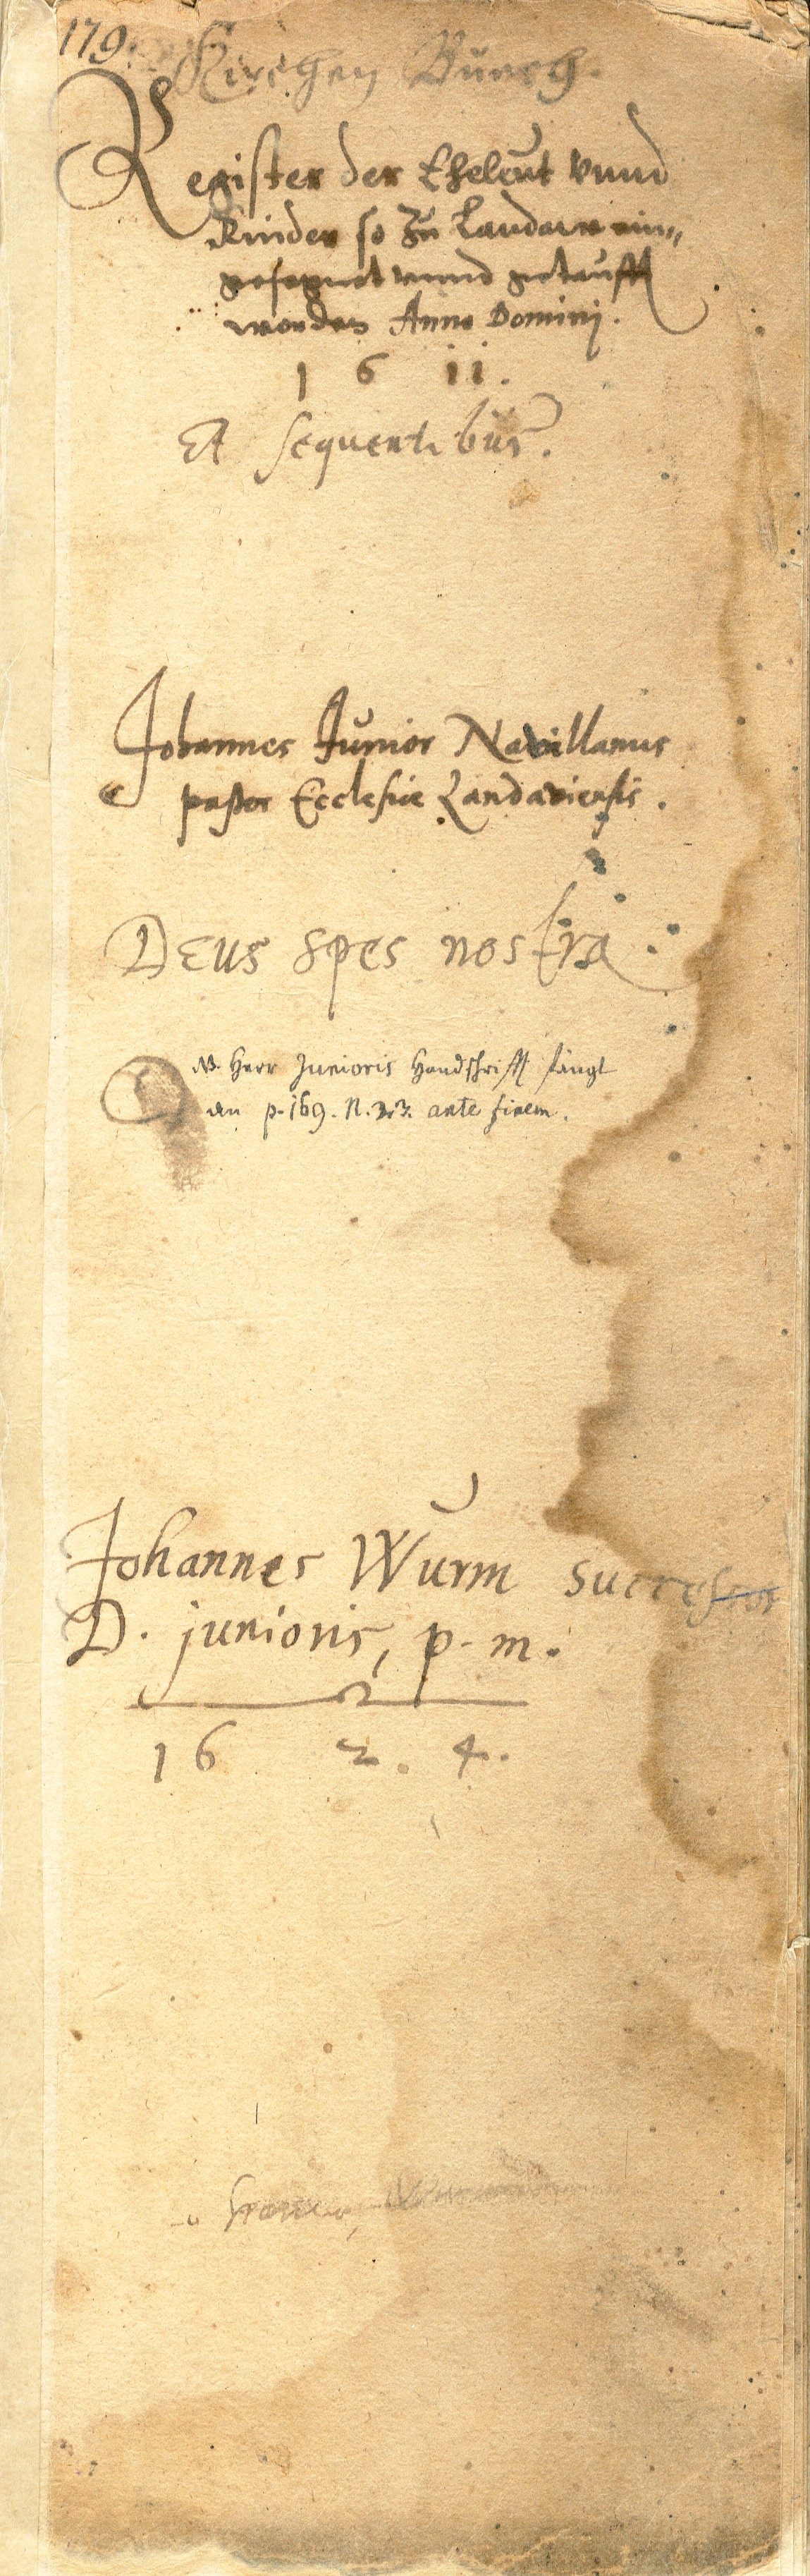 179.
Kirchen Buech.
Register der Eheleut vnnd
Kinder so zu Landaw ein„
gesegnet vnnd getaufft
worden Anno Domini.
1 6 11.
Et sequentibus.
Johannes Junior Navillanus
pastor Ecclesiæ Landaviensis.
Deus spes nostra.
NB. Herr Junioris Handschrifft fängt
an p. 169. N. ante finem.
Johannes Wurm successor
D. junioris, p. m.
16 2. 4.